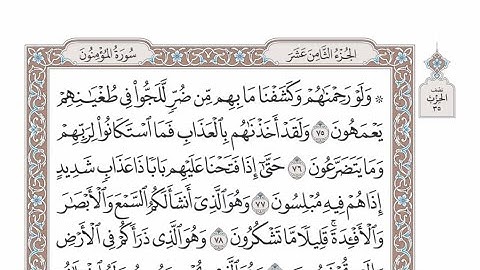 الجزء الثامن عشر
سورة المؤمنون
نصف
الحزب
٣٥
۞ وَلَوْ رَحِمْنَٰهُمْ وَكَشَفْنَا مَا بِهِم مِّن ضُرٍّ لَّلَجُّوا۟ فِى طُغْيَٰنِهِمْ
يَعْمَهُونَ ٧٥ وَلَقَدْ أَخَذْنَٰهُم بِٱلْعَذَابِ فَمَا ٱسْتَكَانُوا۟ لِرَبِّهِمْ
وَمَا يَتَضَرَّعُونَ ٧٦ حَتَّىٰٓ إِذَا فَتَحْنَا عَلَيْهِم بَابًا ذَا عَذَابٍ شَدِيدٍ
إِذَا هُمْ فِيهِ مُبْلِسُونَ ٧٧ وَهُوَ ٱلَّذِىٓ أَنشَأَ لَكُمُ ٱلسَّمْعَ وَٱلْأَبْصَٰرَ
وَٱلْأَفْـِٔدَةَ ۚ قَلِيلًا مَّا تَشْكُرُونَ ٧٨ وَهُوَ ٱلَّذِى ذَرَأَكُمْ فِى ٱلْأَرْضِ